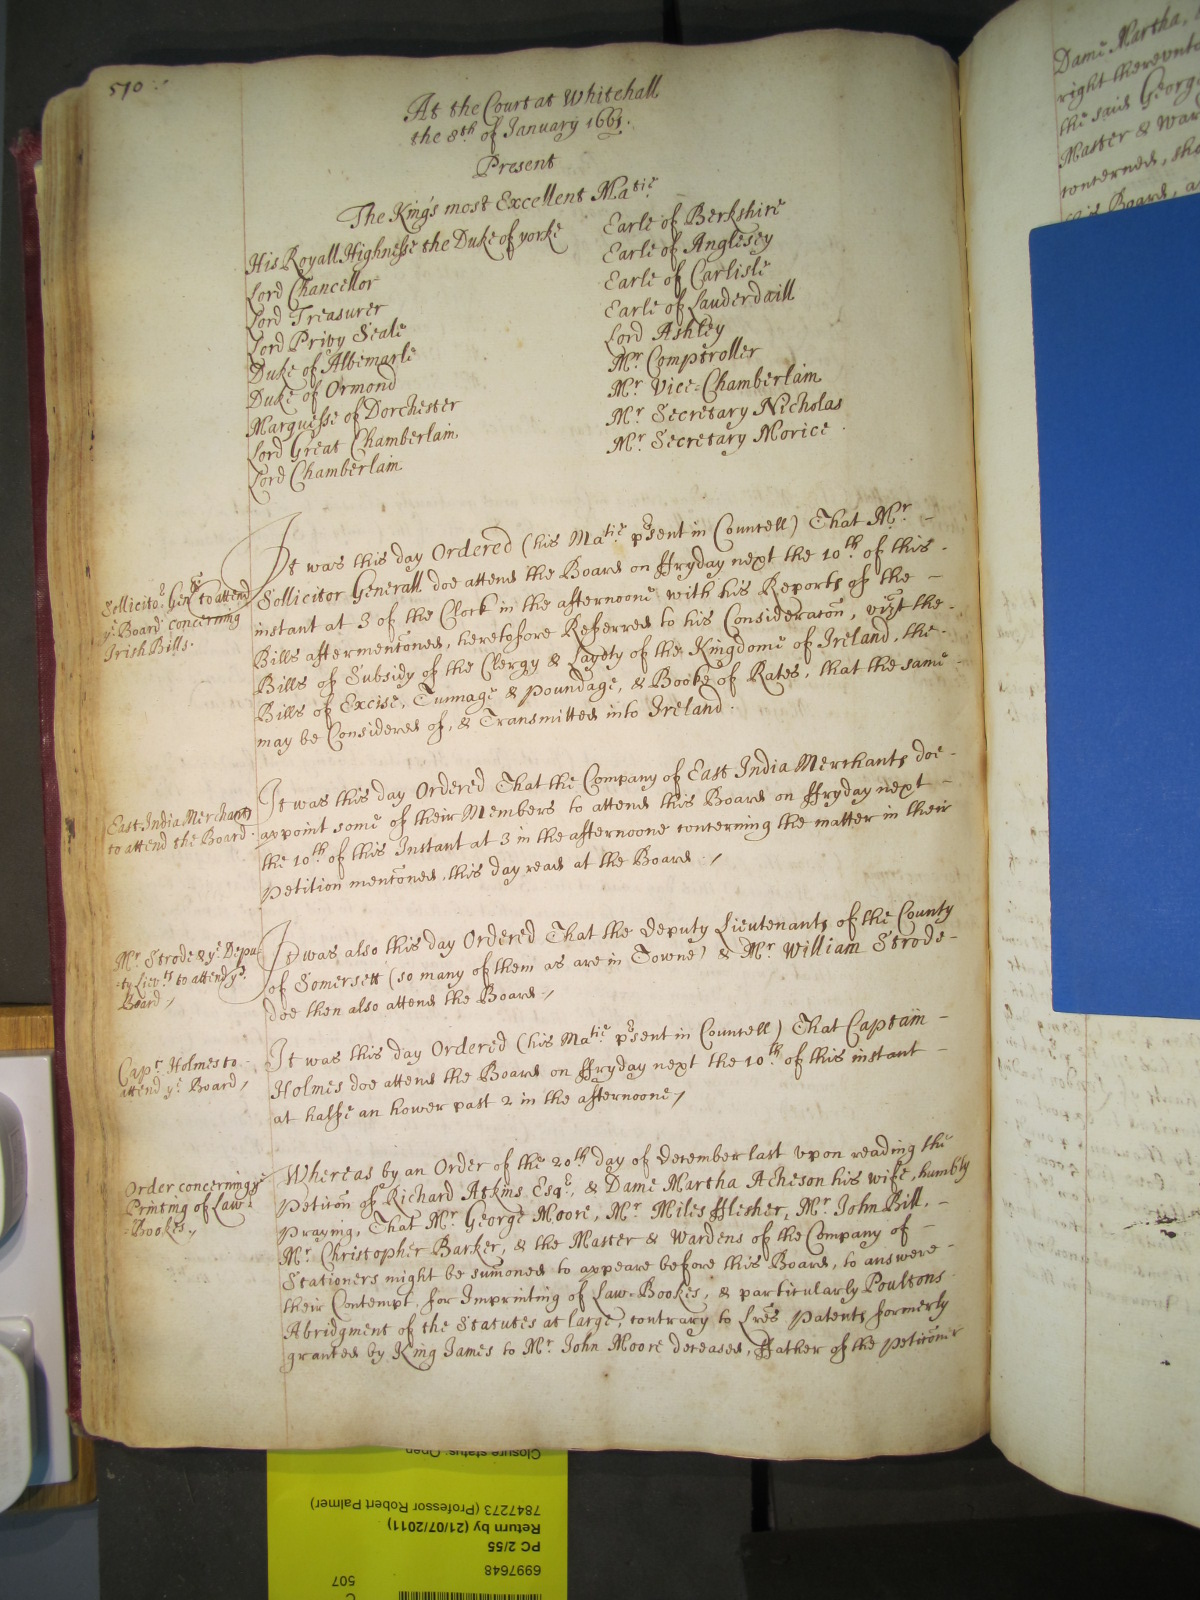 510
At the Court at Whitehall
the 8th of January 1661.
Present
The King's most Excellent Matie
His Royall Highnesse the Duke of yorke
Lord Chancellor
Lord Treasurer
Lord Privy Seale
Duke of Albemarle
Duke of Ormond
Marquesse of Dorchester
Lord Great Chamberlain
Lord Chamberlain
Earle of Berkshire
Earle of Anglesey
Earle of Carlisle
Earle of Lauderdaill
Lord Ashley
Mr. Comptroller
Mr. Vice=Chamberlain
Mr. Secretary Nicholas
Mr. Secretary Morice
Sollicitor Genll to attend
ye Board concerning
Irish Bills.
It was this day Ordered (his Matie p̃sent in Councell) That Mr. -
Sollicitor Generall doe attend the Board on ffryday next the 10th of this -
instant at 3 of the Clock in the afternoone with his Reports of the -
Bills aftermentõned, heretofore Referred to his Consideratõn, vizt the -
Bills of Subsidy of the Clergy & Layety of the Kingdome of Ireland, the -
Bills of Excise, Tunnage & poundage, & Booke of Rates, that the same -
may be Considered of, & Transmitted into Ireland.
East India Merchants
to attend the Board.
It was this day Ordered That the Company of East India Merchants doe -
appoint some of their Members to attend this Board on ffryday next -
the 10th of this Instant at 3 in the afternoone concerning the matter in their
Petition mentõned, this day read at the Board ./
Mr. Strode & ye Depu-
ty Lievts to attend ye
Board /
It was also this day Ordered That the deputy Lieutenants of the County
of Somersett (so many of them as are in Towne) & Mr. William Strode -
doe then also attend the Board./
Capt. Holmes to
attend ye Board /
It was this day Ordered (his Matie p̃sent in Councell) That Captain -
Holmes doe attend the Board on ffryday next the 10th of this instant -
at halfe an hower past 2 in the afternoone /
Order concerning ye
Printing of Law=
Bookes./
Whereas by an Order of the 20th day of december last upon reading the
Petitõn of Richard Atkins Esqr., & Dame Martha Acheson his wife, humbly
praying, That Mr. George Moore, Mr. Miles fflesher, Mr. John Bill, -
Mr. Christopher Barker, & the Master & Wardens of the Company of -
Stationers might be sum̃oned to appeare before this Board, to answere -
their Contempt, for Imprinting of Law=Bookes, & particularly Poultons
Abridgment of the Statutes at large, contrary to Lr̃es Patents formerly
granted by King James to Mr. John Moore deceased, ffather of the petitõner
Dame Martha,
right thereunto
the said George
Master & War
concerned, sho
this Board, a
Closure status: Open
7847273 (Professor Robert Palmer)
Return by (21/07/2011)
PC 2/55
6997648
507